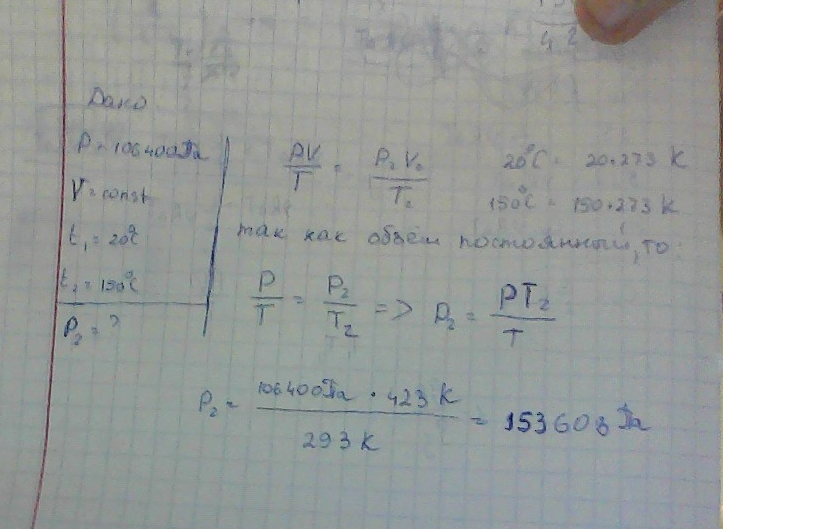 4 2
Дано
P = 106400 Па
V = const
t₁ = 20°C
t₂ = 150°C
P₂ = ?
PV/T = P₂V₂/T₂
20°C = 20+273 K
150°C = 150+273 K
так как объём постоянный, то:
P/T = P₂/T₂ => P₂ = PT₂/T
P₂ = 106400 Па · 423 K / 293 K = 153608 Па